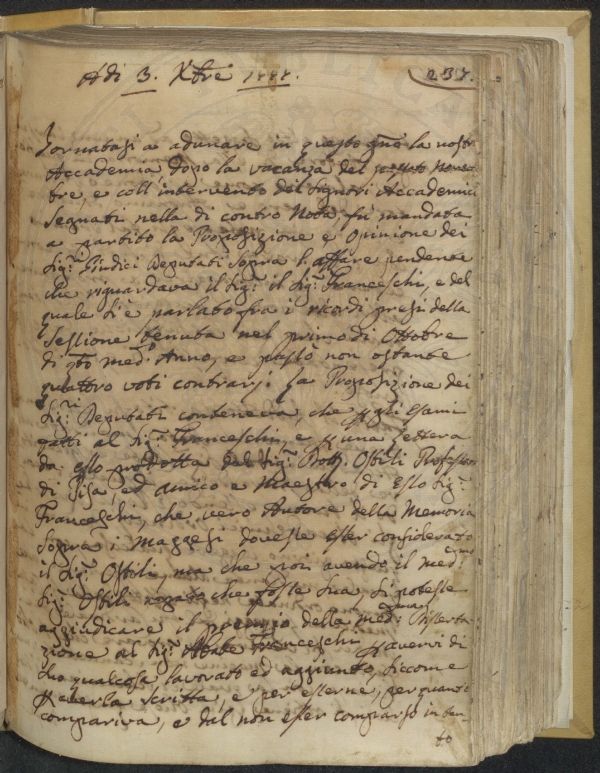 Adi 3. Xbre 1777. 237.
Tornatasi a adunare in questo gno la nostr
Accademia dopo la vacanza del passato Novem
bre, e coll'intervento dei Signori Accademici
Segnati nella di contro Nota, fù mandata
a partito la Proposizione e Opinione dei
Sig.ri Giudici Deputati sopra l'affare pendente
che riguardava il Sig.r Franceschi, e del
quale si è parlato fra i ricordi presi della
Sessione tenuta nel primo di Ottobre
di qto med.o Anno, e passò non ostante
quattro voti contrarj. La Proposizione dei
Sig.ri Deputati conteneva, che gli Esami
fatti al Sig.r Franceschi, e una Lettera
da esso prodotta del Sig.r Dott. Ostili Professor
di Pisa, ed Amico e Maestro di Esso Sig.r
Franceschi, che vero Autore della Memoria
Sopra i Maggesi dovesse esser considerato
il Sig.r Ostili, ma che non avendo il med.mo
Sig.r Ostili negato che fosse sua, si potesse
aggiudicare il premio della med.ma Disserta
zione al Sig.r Abate Franceschi avervi di
suo qualcosa lavorato ed aggiunto, siccome
averla scritta, e per esserne, per quanto
compariva, e dal non esser comparso in ben
to